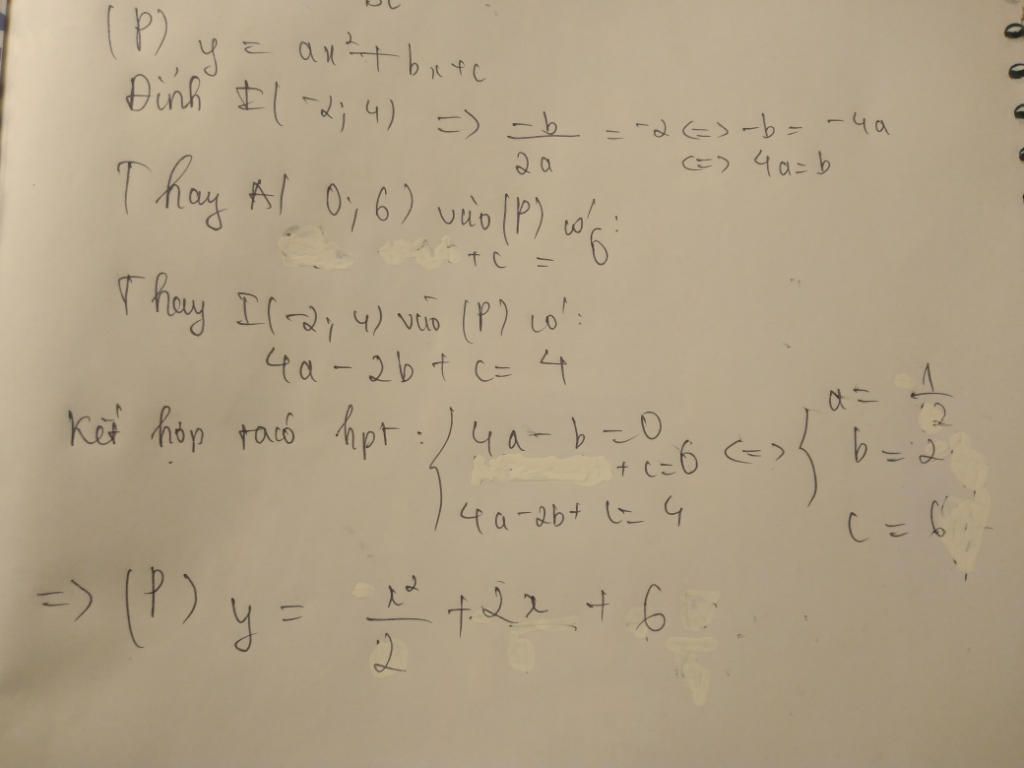 (P) y = ax² + bx + c
Đỉnh I( -2; 4) => -b/2a = -2 <=> -b = -4a
<=> 4a = b
Thay A( 0; 6) vào (P) có:
+ c = 6
Thay I(-2; 4) vào (P) có:
4a - 2b + c = 4
Kết hợp ta có hpt: { 4a - b = 0 <=> { a = 1/2
+ c = 6 b = 2
4a - 2b + c = 4 c = 6
=> (P) y = x²/2 + 2x + 6